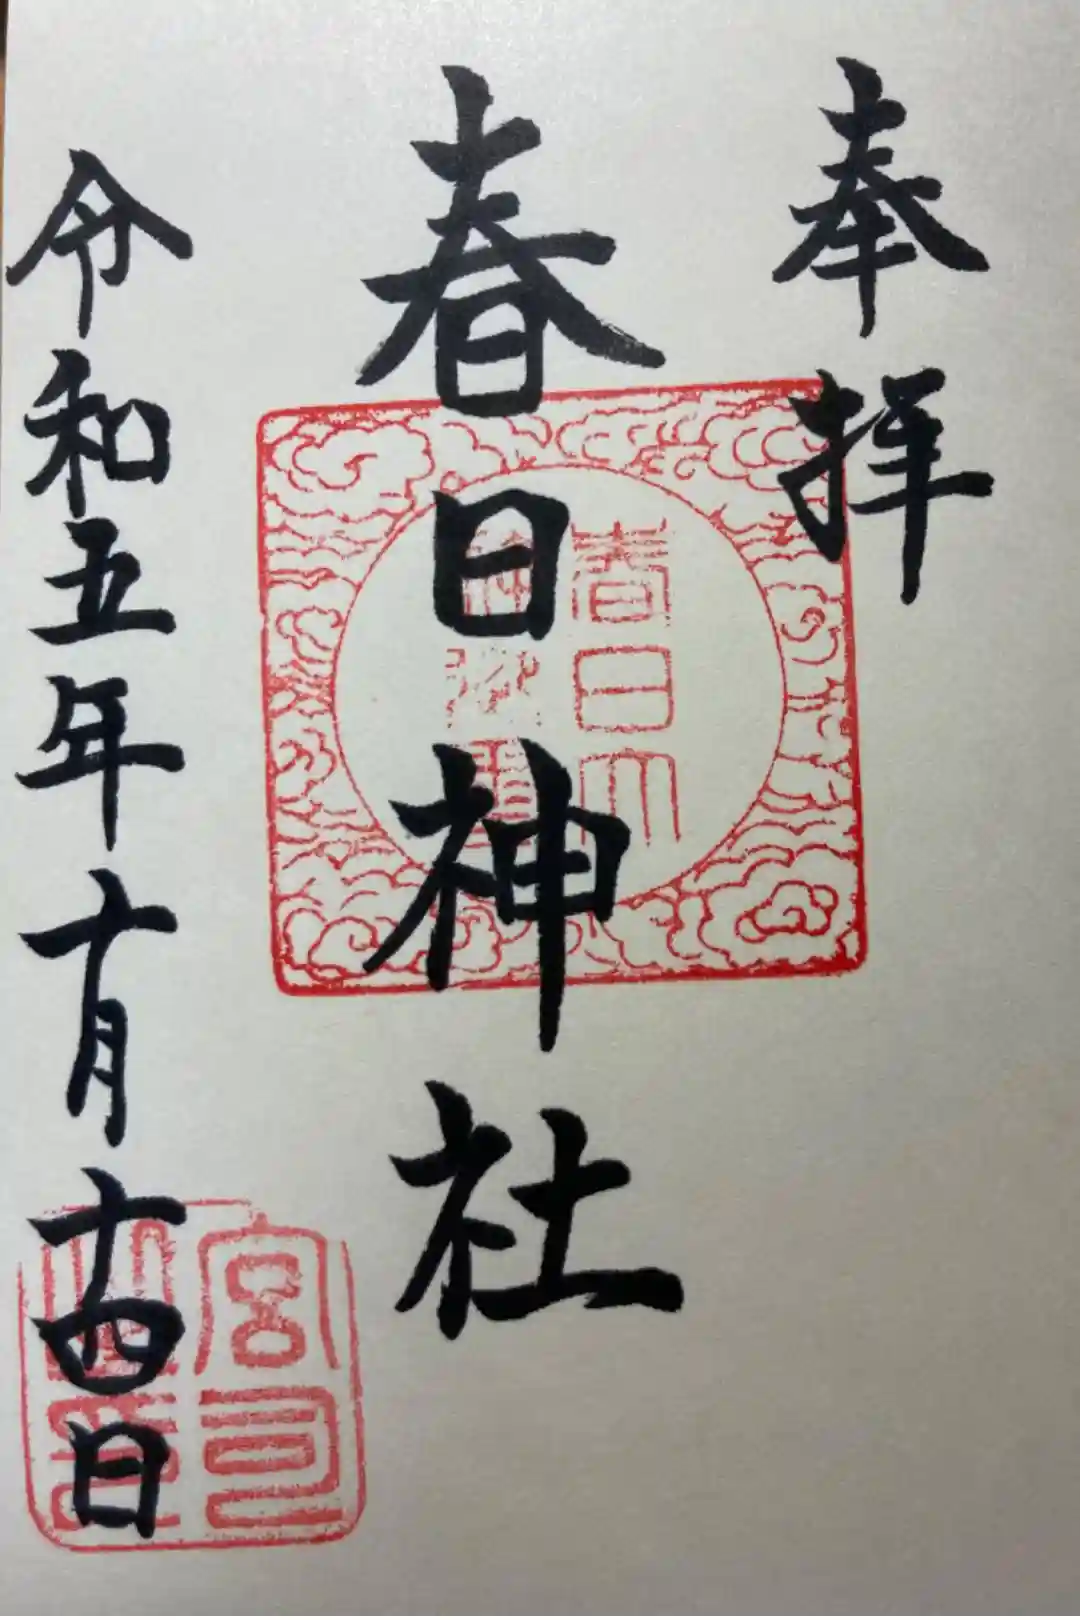 奉拝
春日神社
令和五年十月十四日
春日大
神
宮司